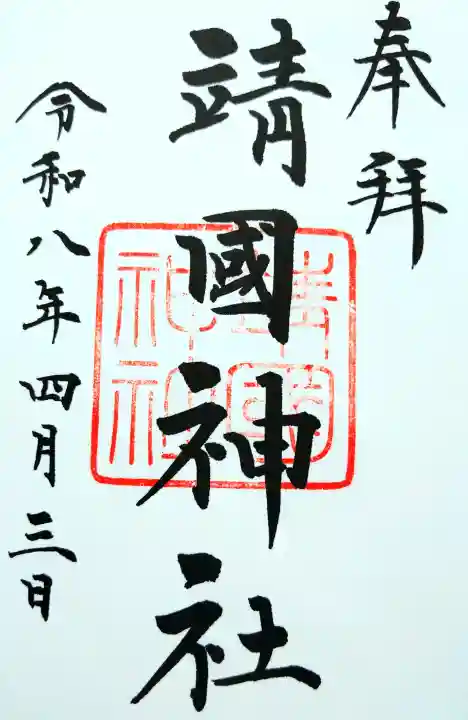 奉拝
靖國神社
令和八年四月三日
靖國
神社